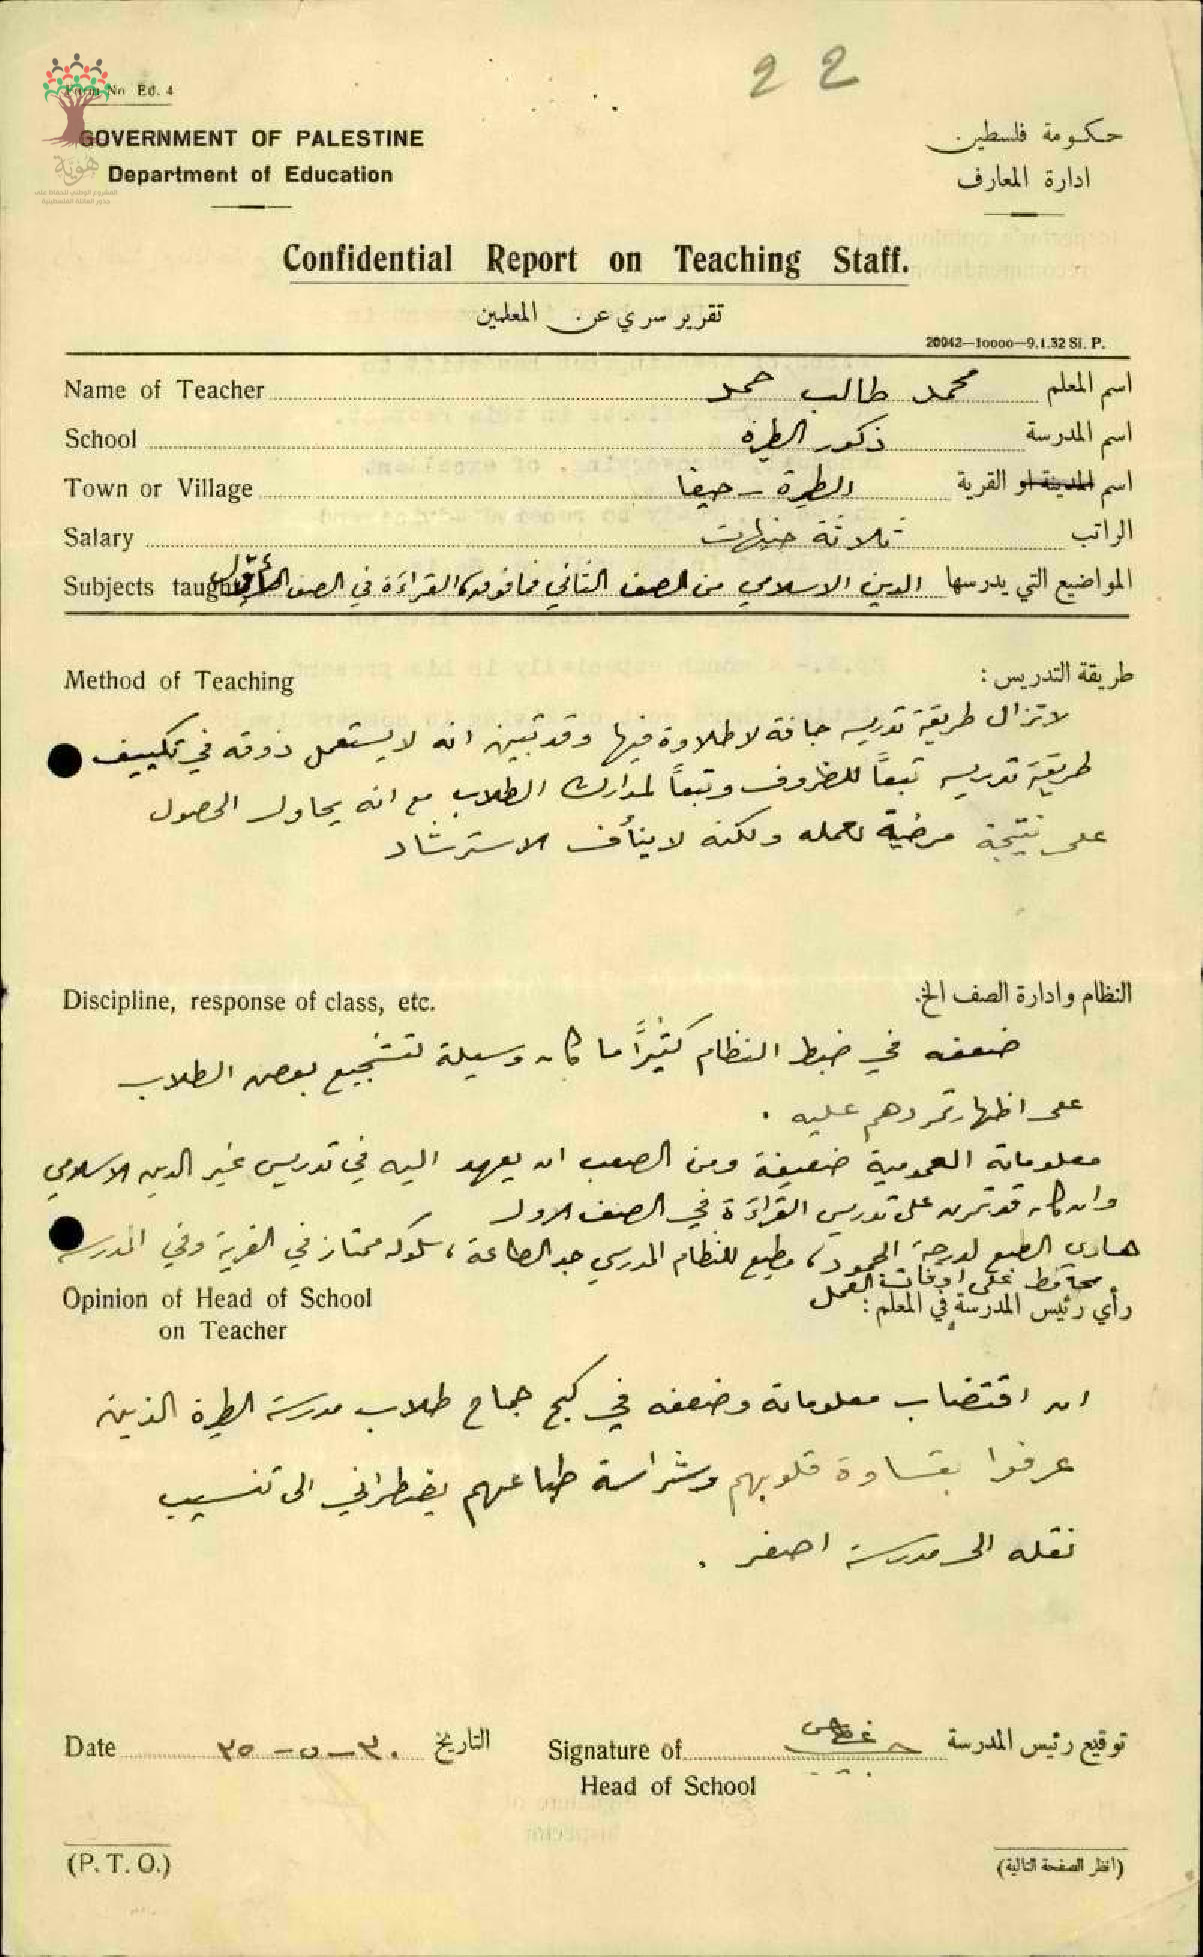 22
Form No Ed. 4
GOVERNMENT OF PALESTINE
Department of Education
حكومة فلسطين
ادارة المعارف
هوية
المشروع الوطني للحفاظ على
جذور العائلة الفلسطينية
Confidential Report on Teaching Staff.
تقرير سري عن المعلمين
20042—10000—9.1.32 Si. P.
Name of Teacher محمد طالب حمد اسم المعلم
School ذكور الطيرة اسم المدرسة
Town or Village الطيرة - حيفا اسم المدينة او القرية
Salary ثلاثة جنيهات الراتب
Subjects taught الدين الاسلامي من الصف الثاني فما فوق، القراءة في الصف الأول المواضيع التي يدرسها
Method of Teaching طريقة التدريس :
لا تزال طريقة تدريسه جافة لا طلاوة فيها وقد تبين انه لا يستعمل ذوقه في تكييف
طريقة تدريسه تبعاً للظروف وتبعاً لمدارك الطلاب مع انه يحاول الحصول
على نتيجة مرضية لعمله ولكنه لا يتأفف الاسترشاد
Discipline, response of class, etc. النظام وادارة الصف الخ.
ضعفه في ضبط النظام كثيراً ما كان وسيلة لتشجيع بعض الطلاب
على اظهار تمردهم عليه .
معلوماته العمومية ضعيفة ومن الصعب ان يعهد اليه في تدريس غير الدين الاسلامي
وان كان قد تمرن على تدريس القراءة في الصف الاول
هادئ الطبع لدرجة الجمود، مطيع للنظام المدرسي جد الطاعة، سلوكه ممتاز في القرية وفي المدرسة
محافظ على اوقات العمل
Opinion of Head of School
on Teacher
رأي رئيس المدرسة في المعلم :
ان اقتضاب معلوماته وضعفه في كبح جماح طلاب مدرسة الطيرة الذين
عرفوا بقساوة قلوبهم وشراسة طباعهم يضطراني الى تنسيب
نقله الى مدرسة اصغر .
Date ٣٠-٥-٣٥ التاريخ Signature of توقيع رئيس المدرسة
Head of School
(P. T. O.)
(انظر الصفحة التالية)